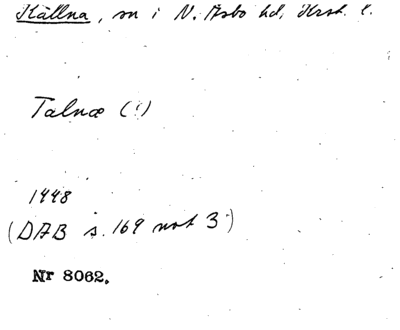 Källna, sn i N. Åsbo hd, Krist. l.
Talnæ (!)
1448
(DAB s. 169 not 3)
Nr 8062.